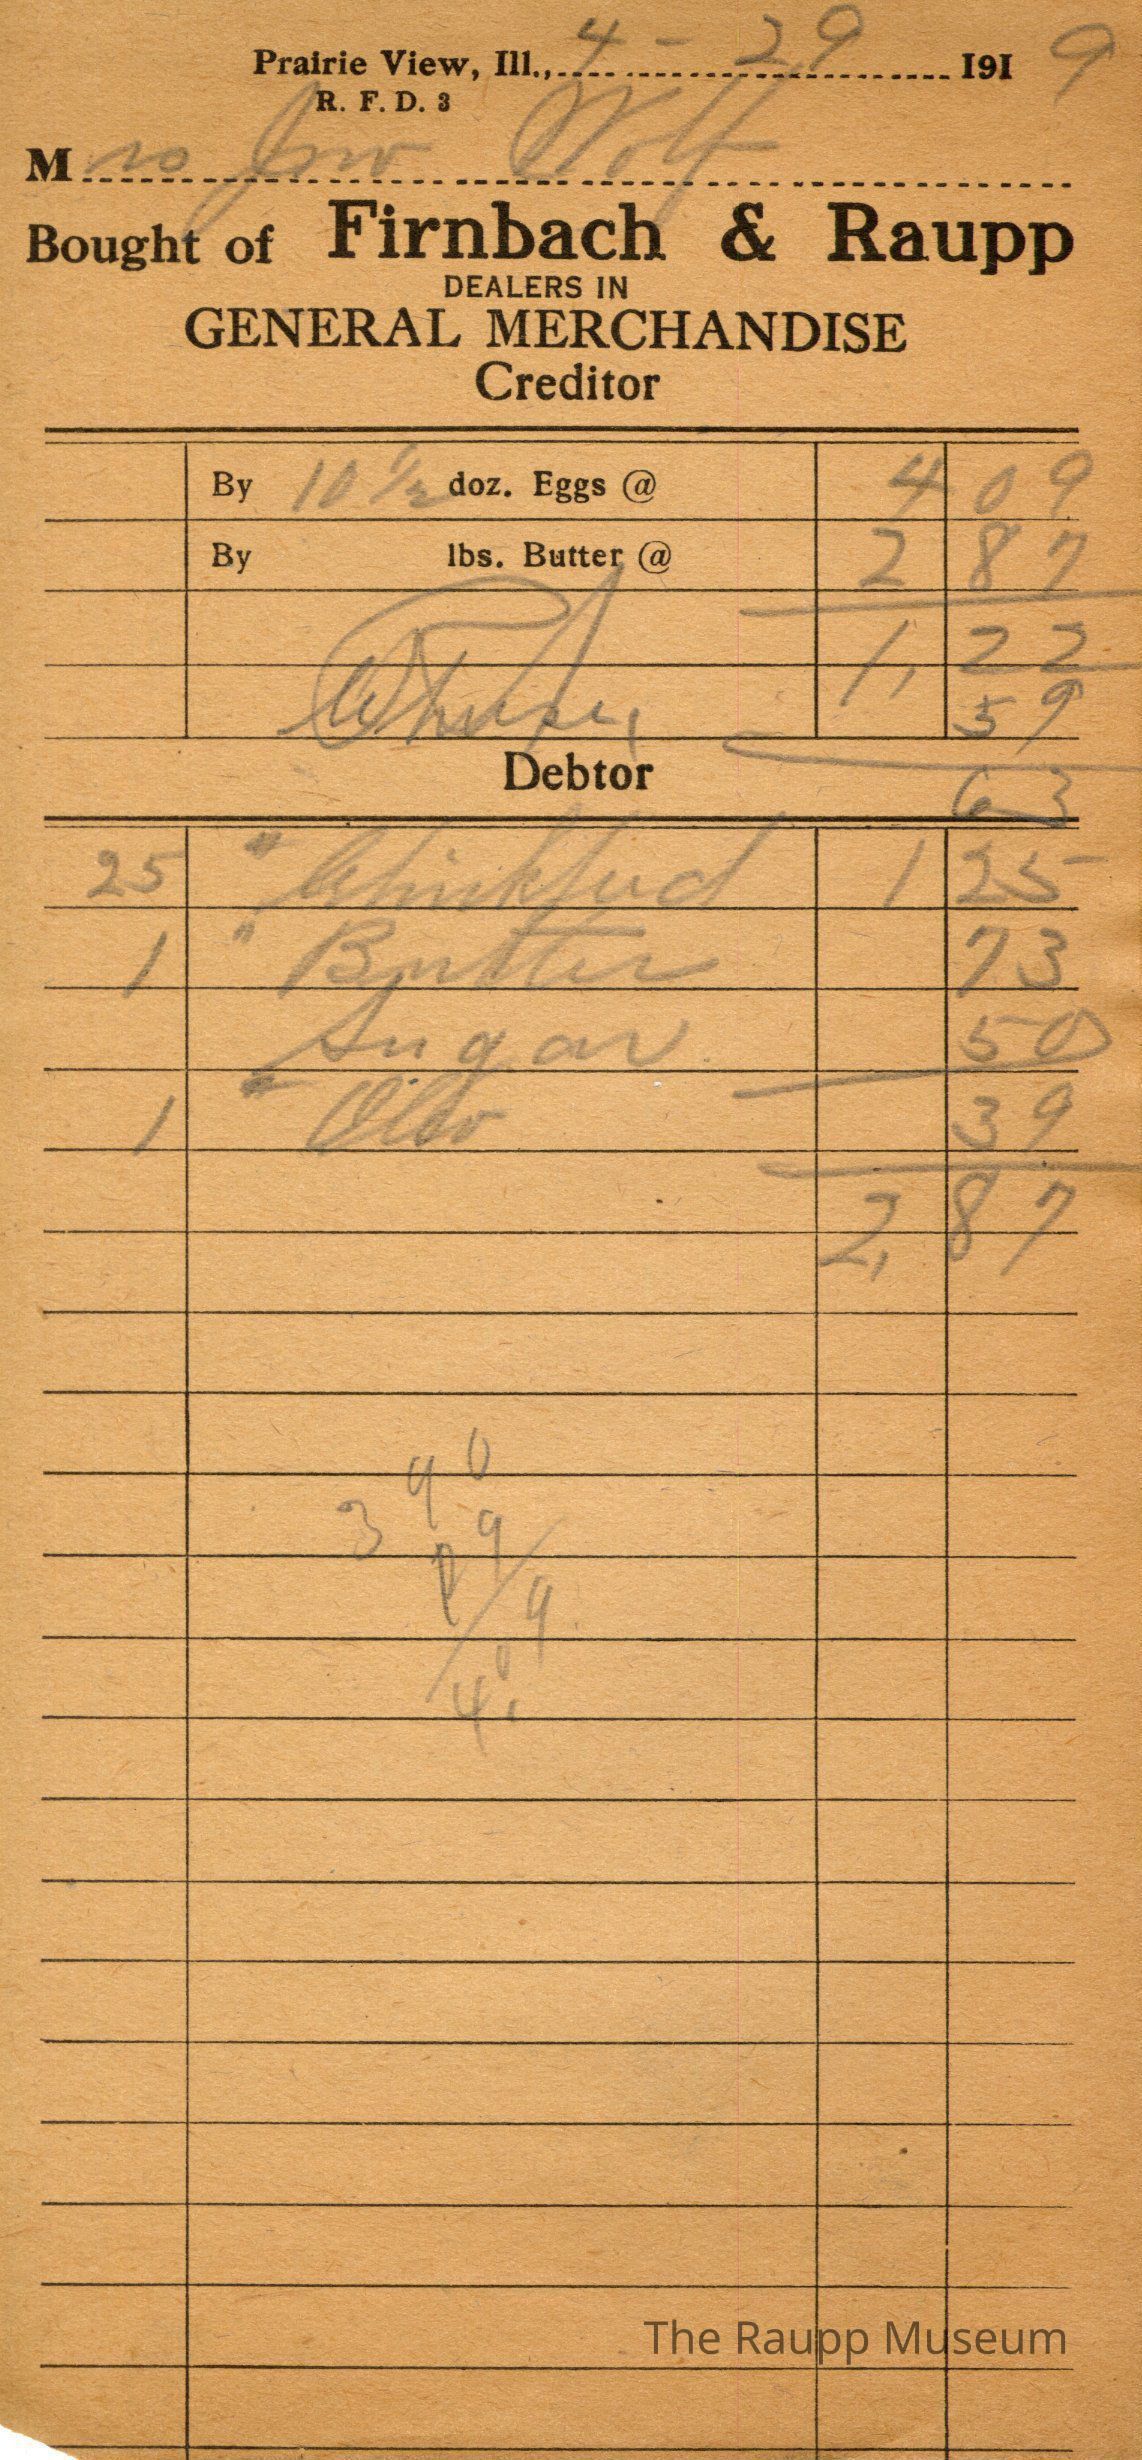 Prairie View, Ill., 4 - 29 1919
R. F. D. 3
Mrs Jno Wolf
Bought of Firnbach & Raupp
DEALERS IN
GENERAL MERCHANDISE
Creditor
By 10 1/2 doz. Eggs @ 4 09
By lbs. Butter @ 2 87
1, 22
59
Debtor
63
25 " Chickfud 1 25
1 " Butter 73
Sugar 50
1 " Oleo 39
2, 87
The Raupp Museum